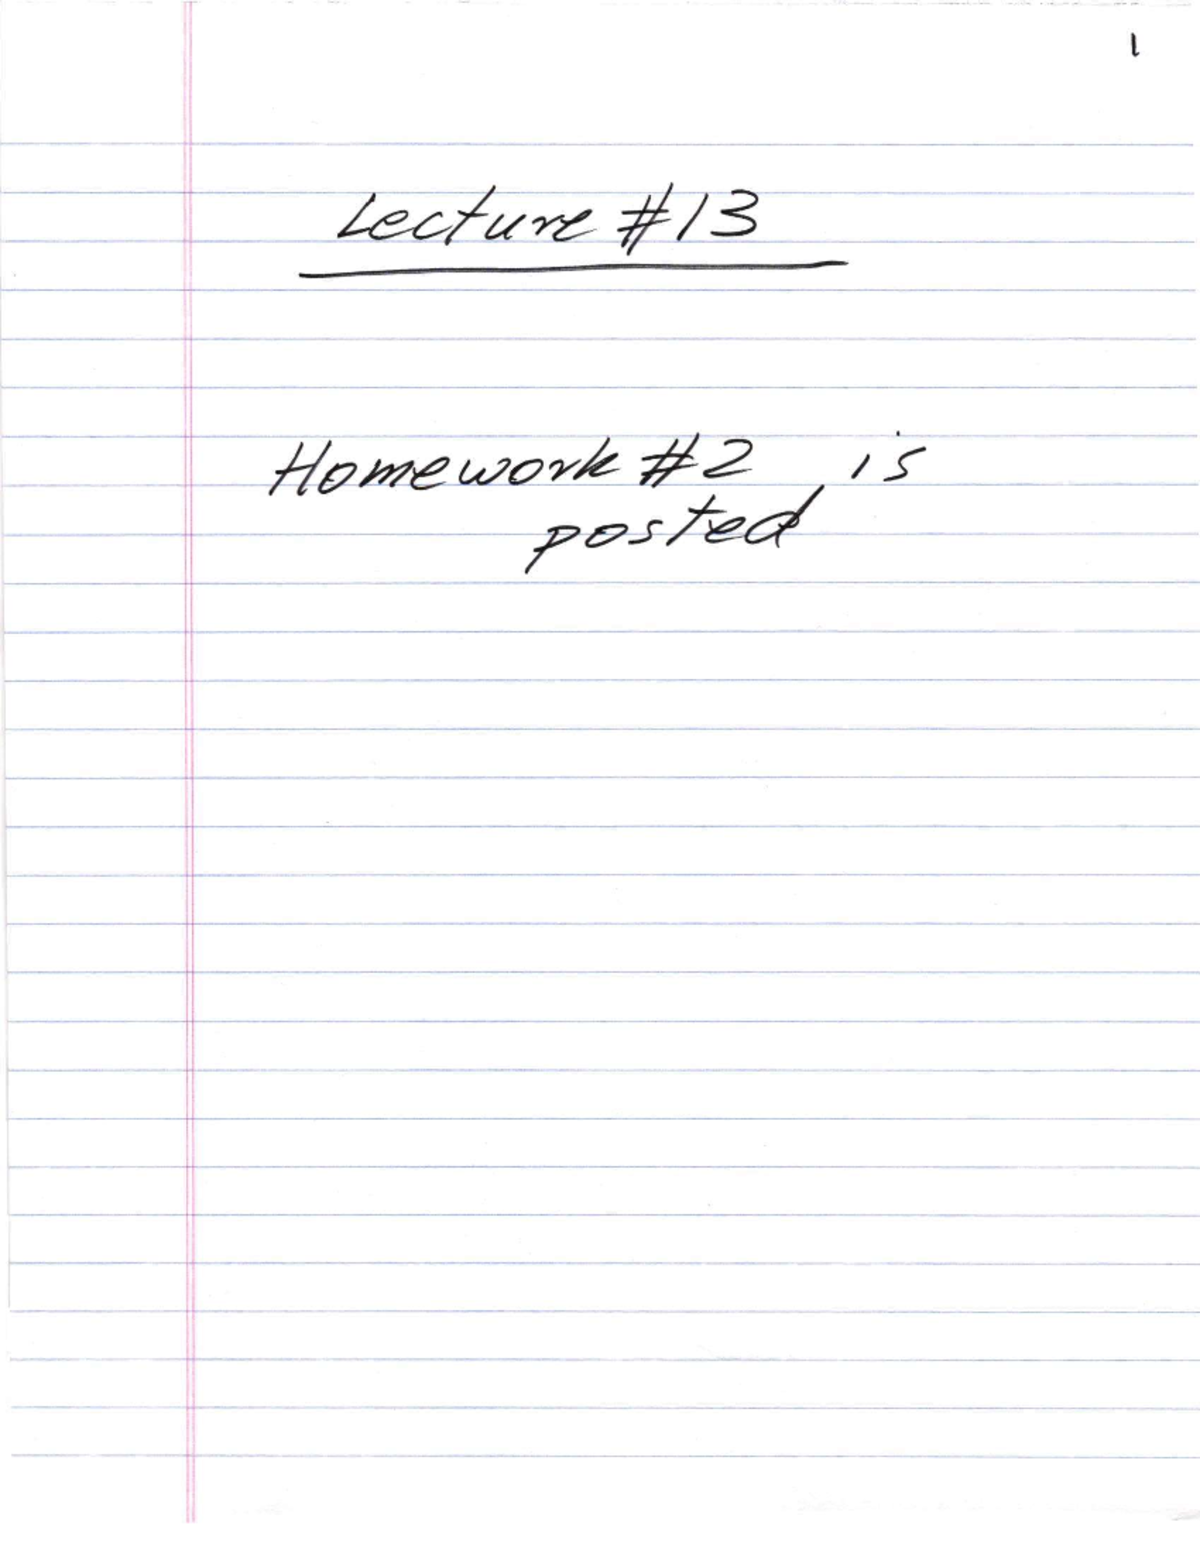 1
Lecture #13
Homework #2 is
posted